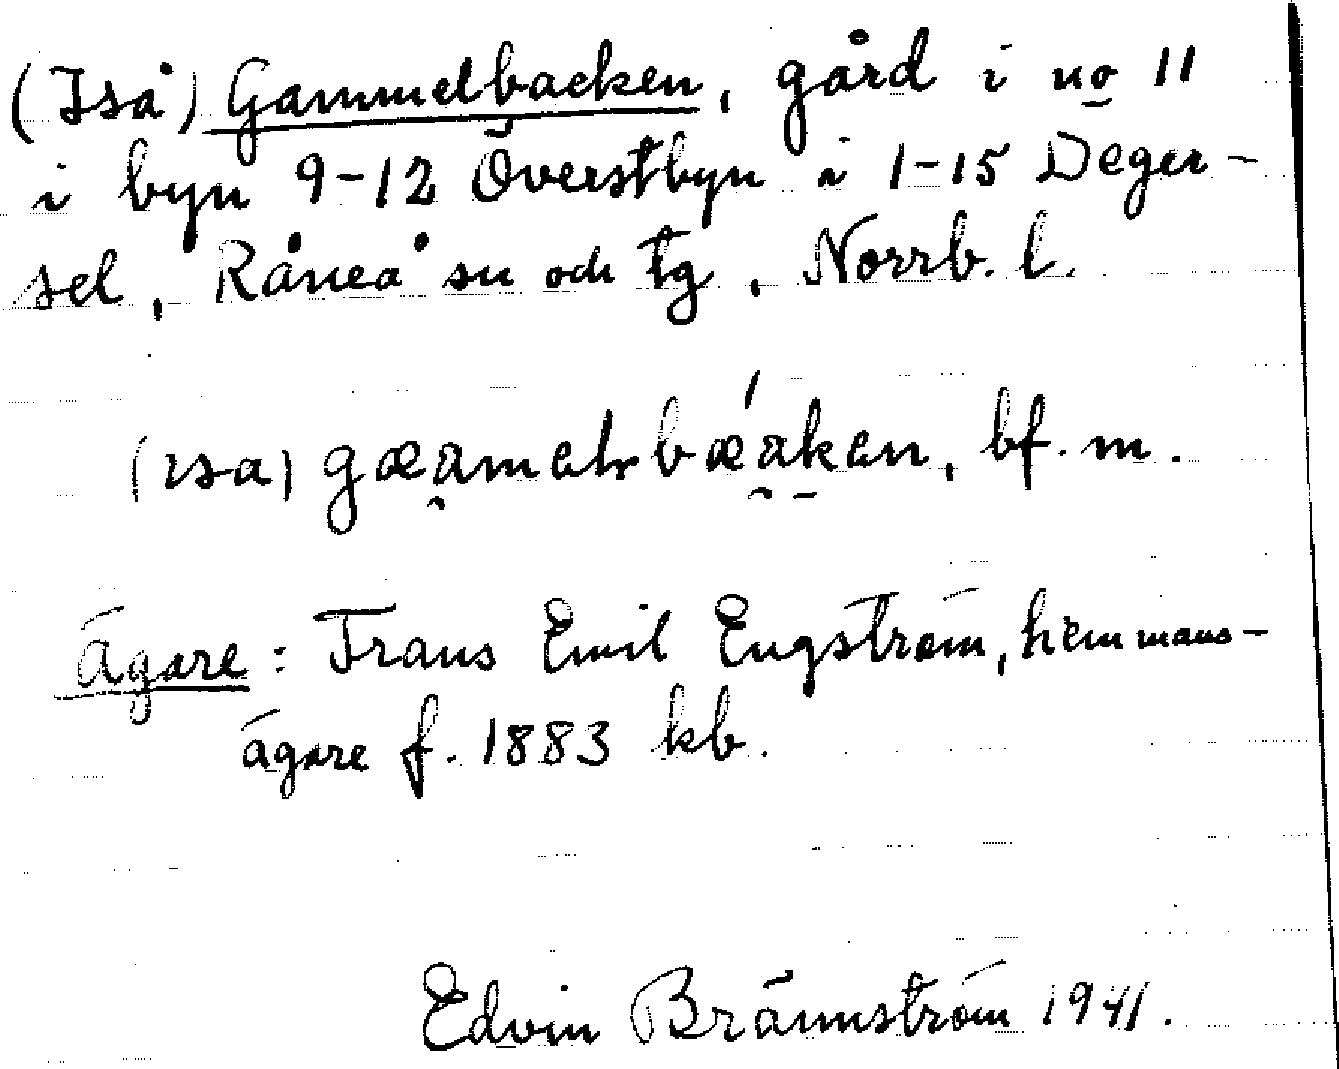 (Iså) Gammelbacken, gård i no 11
i byn 9-12 Överstbyn i 1-15 Deger-
sel, Råneå sn och tg, Norrb. l.
(ısa) gæämelrbæ´äken, bf. m.
Ägare: Frans Emil Engström, hemmans-
ägare f. 1883 kb.
Edvin Brännström 1941.